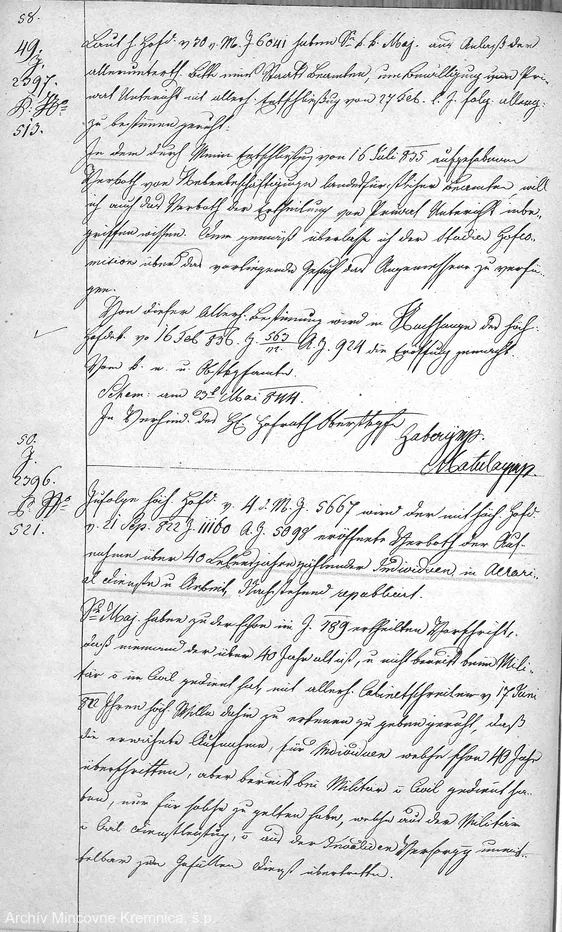 58.
49.
J.
2397.
513.
Laut h. Hofd. v 30 v. M. Z 6041 haben Se k. k. Maj. aus Anlaß der
allerunterth. Bitte eines Staats Beamten, um Bewilligung zum Pri-
vat Unterricht mit allerh. Entschließung von 27 Feb. l. J. folg. allerg.
zu bestimmen geruht:
In dem durch Meine Entschließung von 16 Juli 835 aufgehobenen
Verboth von Nebenbeschäftigung landesfürstlicher Beamten will
ich auch das Verboth der Ertheilung von Privat Unterricht inbe-
griffen wissen. Dem gemäß überlasse ich der Studien Hofco-
mission über das vorliegende Gesuch das Angemessene zu verfü-
gen.
Von dieser Allerh. Bestimmung wird in Nachhange des hoh.
Hofdek. vo 16 Feb 836. Z. 563/m. A. Z. 924 die Eröffnung gemacht.
Vom k. n. u. Obstkgfamte.
Schem: am 23t Mai 844.
In Verhind. des H. Hofrath Oberstkgf
Matulay mp.
50.
J.
2396.
521.
Zufolge hoh. Hofd. v. 4 d. M. Z. 5667 wird der mit hoh Hofd.
v. 21 Sep. 822 Z. 11160 A. Z. 5098 eröffnete Verboth der Auf-
nahme über 40 Lebensjahre zählender Individuen in Aerari-
al Dienste u Arbeit, Nachstehend republicirt.
Se Maj. haben zu der schon im J. 789 ertheilten Vorschrift,
daß niemand der über 40 Jahr alt ist, u nicht bereits beim Mili-
tär o in Civil gedient hat, mit allerh. Cabinetschreiben v 17 Juni
822 Ihren höch. Willen dahin zu erkenen zu geben geruht, daß
die erwähnte Aufnahme, für Individuen welche schon 40 Jahr
überschritten, aber bereits bei Militär o Civil gedient ha-
ben, nur für solche zu gelten habe, welche aus der Militär
o Civil Dienstleistung, o aus der Invaliden Versorgg unmit-
telbar zum Gefällen Dienst übertretten.
Archív Mincovne Kremnica, š.p.